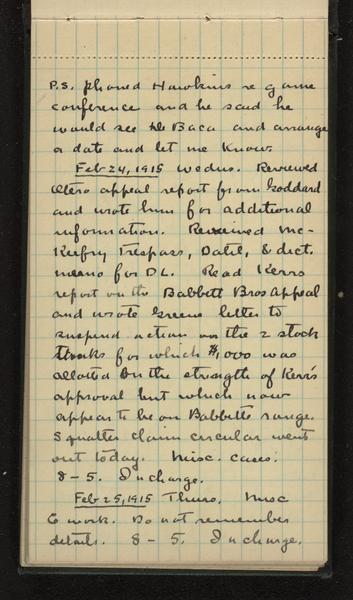 P.S. phoned Hawkins re game
conference and he said he
would see de Baca and arrange
a date and let me know.
Feb 24, 1915 Wednes. Reviewed
Otero appeal report from Goddard
and wrote him for additional
information. Reviewed Mc-
Keefry Trespass, Datil, & dict.
memo for DL. Read Kerrs
report on the Babbitt Bros Appeal
and wrote Greene letter to
suspend action on the 2 stock
tanks for which $1,000 was
allotted on the strength of Kerr's
approval but which now
appear to be on Babbitts range.
Squatter claim circular went
out today. Misc. cases.
8 - 5. In charge.
Feb 25, 1915 Thurs. Misc
G work. Do not remember
details. 8 - 5. In charge.